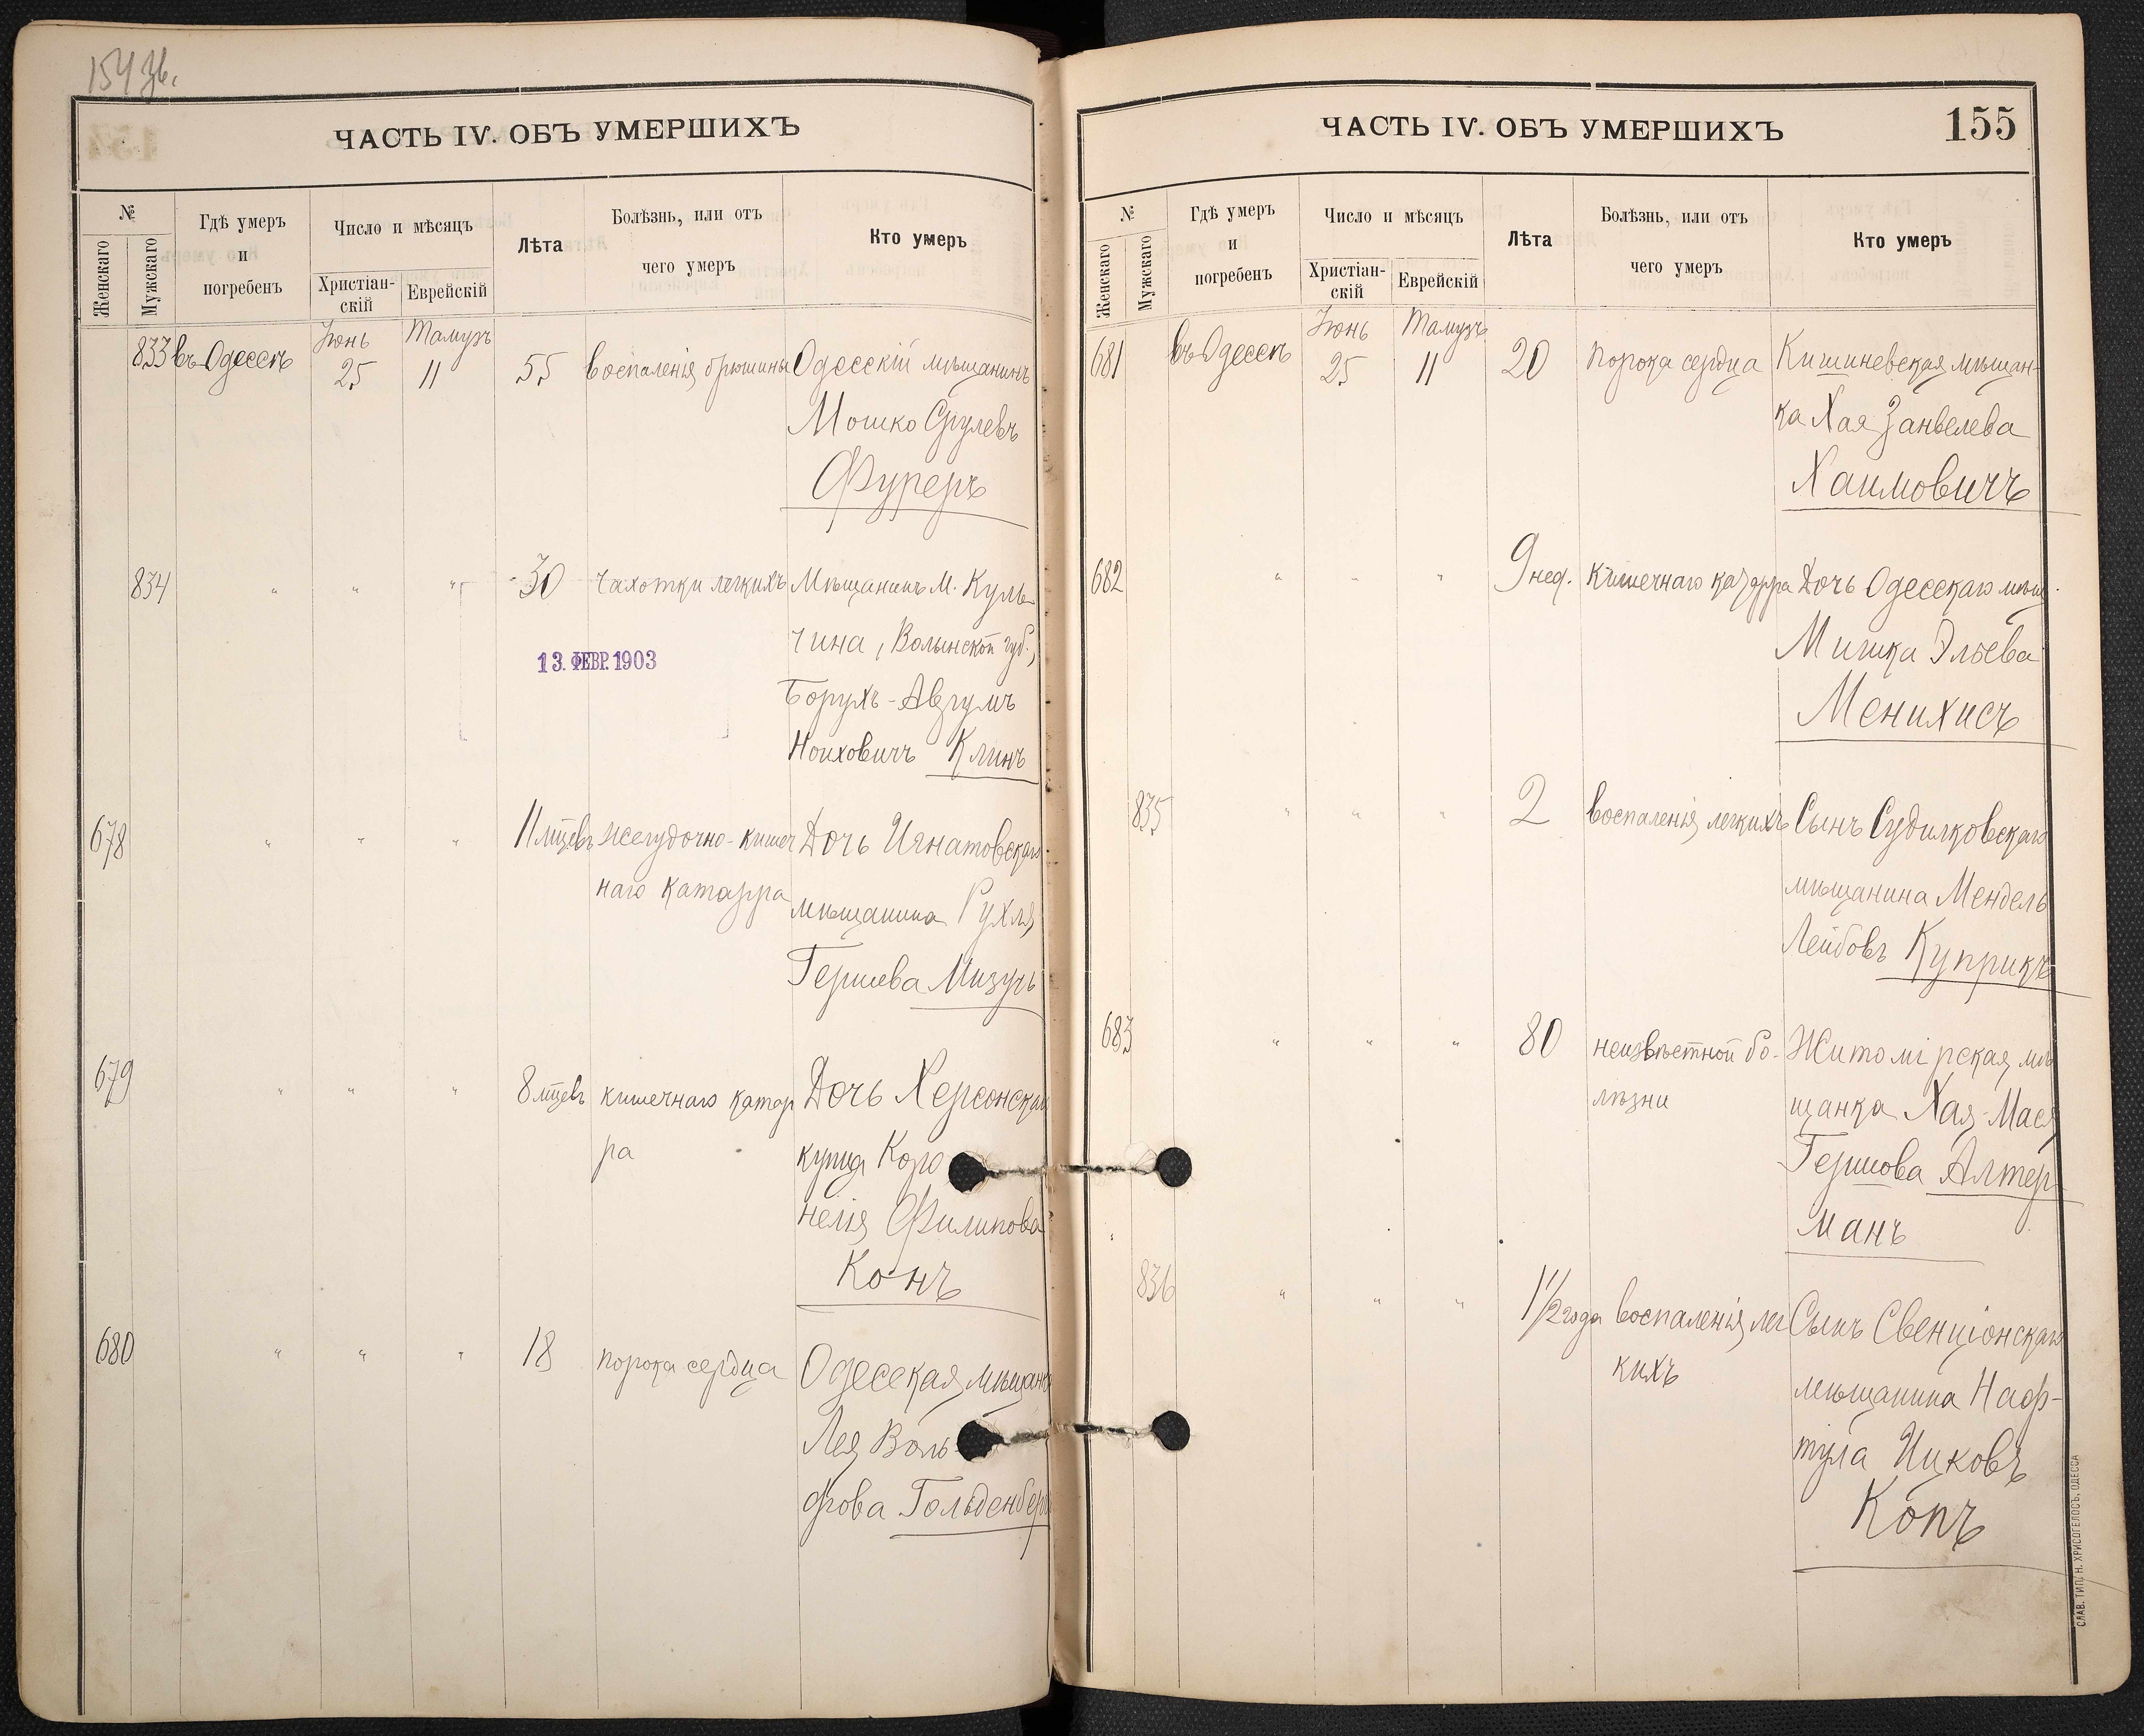 154 зв.
ЧАСТЬ IV. ОБЪ УМЕРШИХЪ
№
Женскаго
Мужскаго
Гдѣ умеръ
и
погребенъ
Число и мѣсяцъ
Христіан-
скій
Еврейскій
Лѣта
Болѣзнь, или отъ
чего умеръ
Кто умеръ
Іюнь Тамузъ
833 въ Одессѣ 25 11 55 воспаленія брюшины Одесскій мѣщанинъ
Мошко Срулевъ
Фуреръ
834 " " " 30 чахотки легкихъ Мѣщанинъ М. Куль-
чина, Волынской губ.,
13. ФЕВР. 1903
Борухъ-Авгумъ
Ноиховичъ Клинъ
678 " " " 11 мцевъ желудочно-кишеч Дочь Игнатовскаго
наго катарра мѣщанина Рухля
Гершева Мизучъ
679 " " " 8 мцевъ кишечнаго катар Дочь Херсонскаго
ра купца Кор
нелія Филипова
Конъ
680 " " " 18 порока сердца Одесская мѣщанка
Лея Воль-
фова Гольденбергъ
ЧАСТЬ IV. ОБЪ УМЕРШИХЪ
155
№
Женскаго
Мужскаго
Гдѣ умеръ
и
погребенъ
Число и мѣсяцъ
Христіан-
скій
Еврейскій
Лѣта
Болѣзнь, или отъ
чего умеръ
Кто умеръ
Іюнь Тамузъ
681 въ Одессѣ 25 11 20 порока сердца Кишиневская мѣщан-
ка Хая Занвелева
Хаимовичъ
682 " " " 9 нед. кишечнаго катарра Дочь Одесскаго мѣщ.
Миника Эльева
Менихисъ
835 " " " 2 воспаленія легкихъ Сынъ Судилковскаго
мѣщанина Мендель
Лейбовъ Куприкъ
683 " " " 80 неизвѣстной бо- Житомірская мѣ
лѣзни щанка Хая-Мася
Гершова Алтер-
манъ
836 " " " 1 1/2 года воспаленія лег Сынъ Свенціонскаго
кихъ мѣщанина Наф-
тула Ицковъ
Копъ
СЛАВ. ТИП. Н. ХРИСОГЕЛОСЪ, ОДЕССА